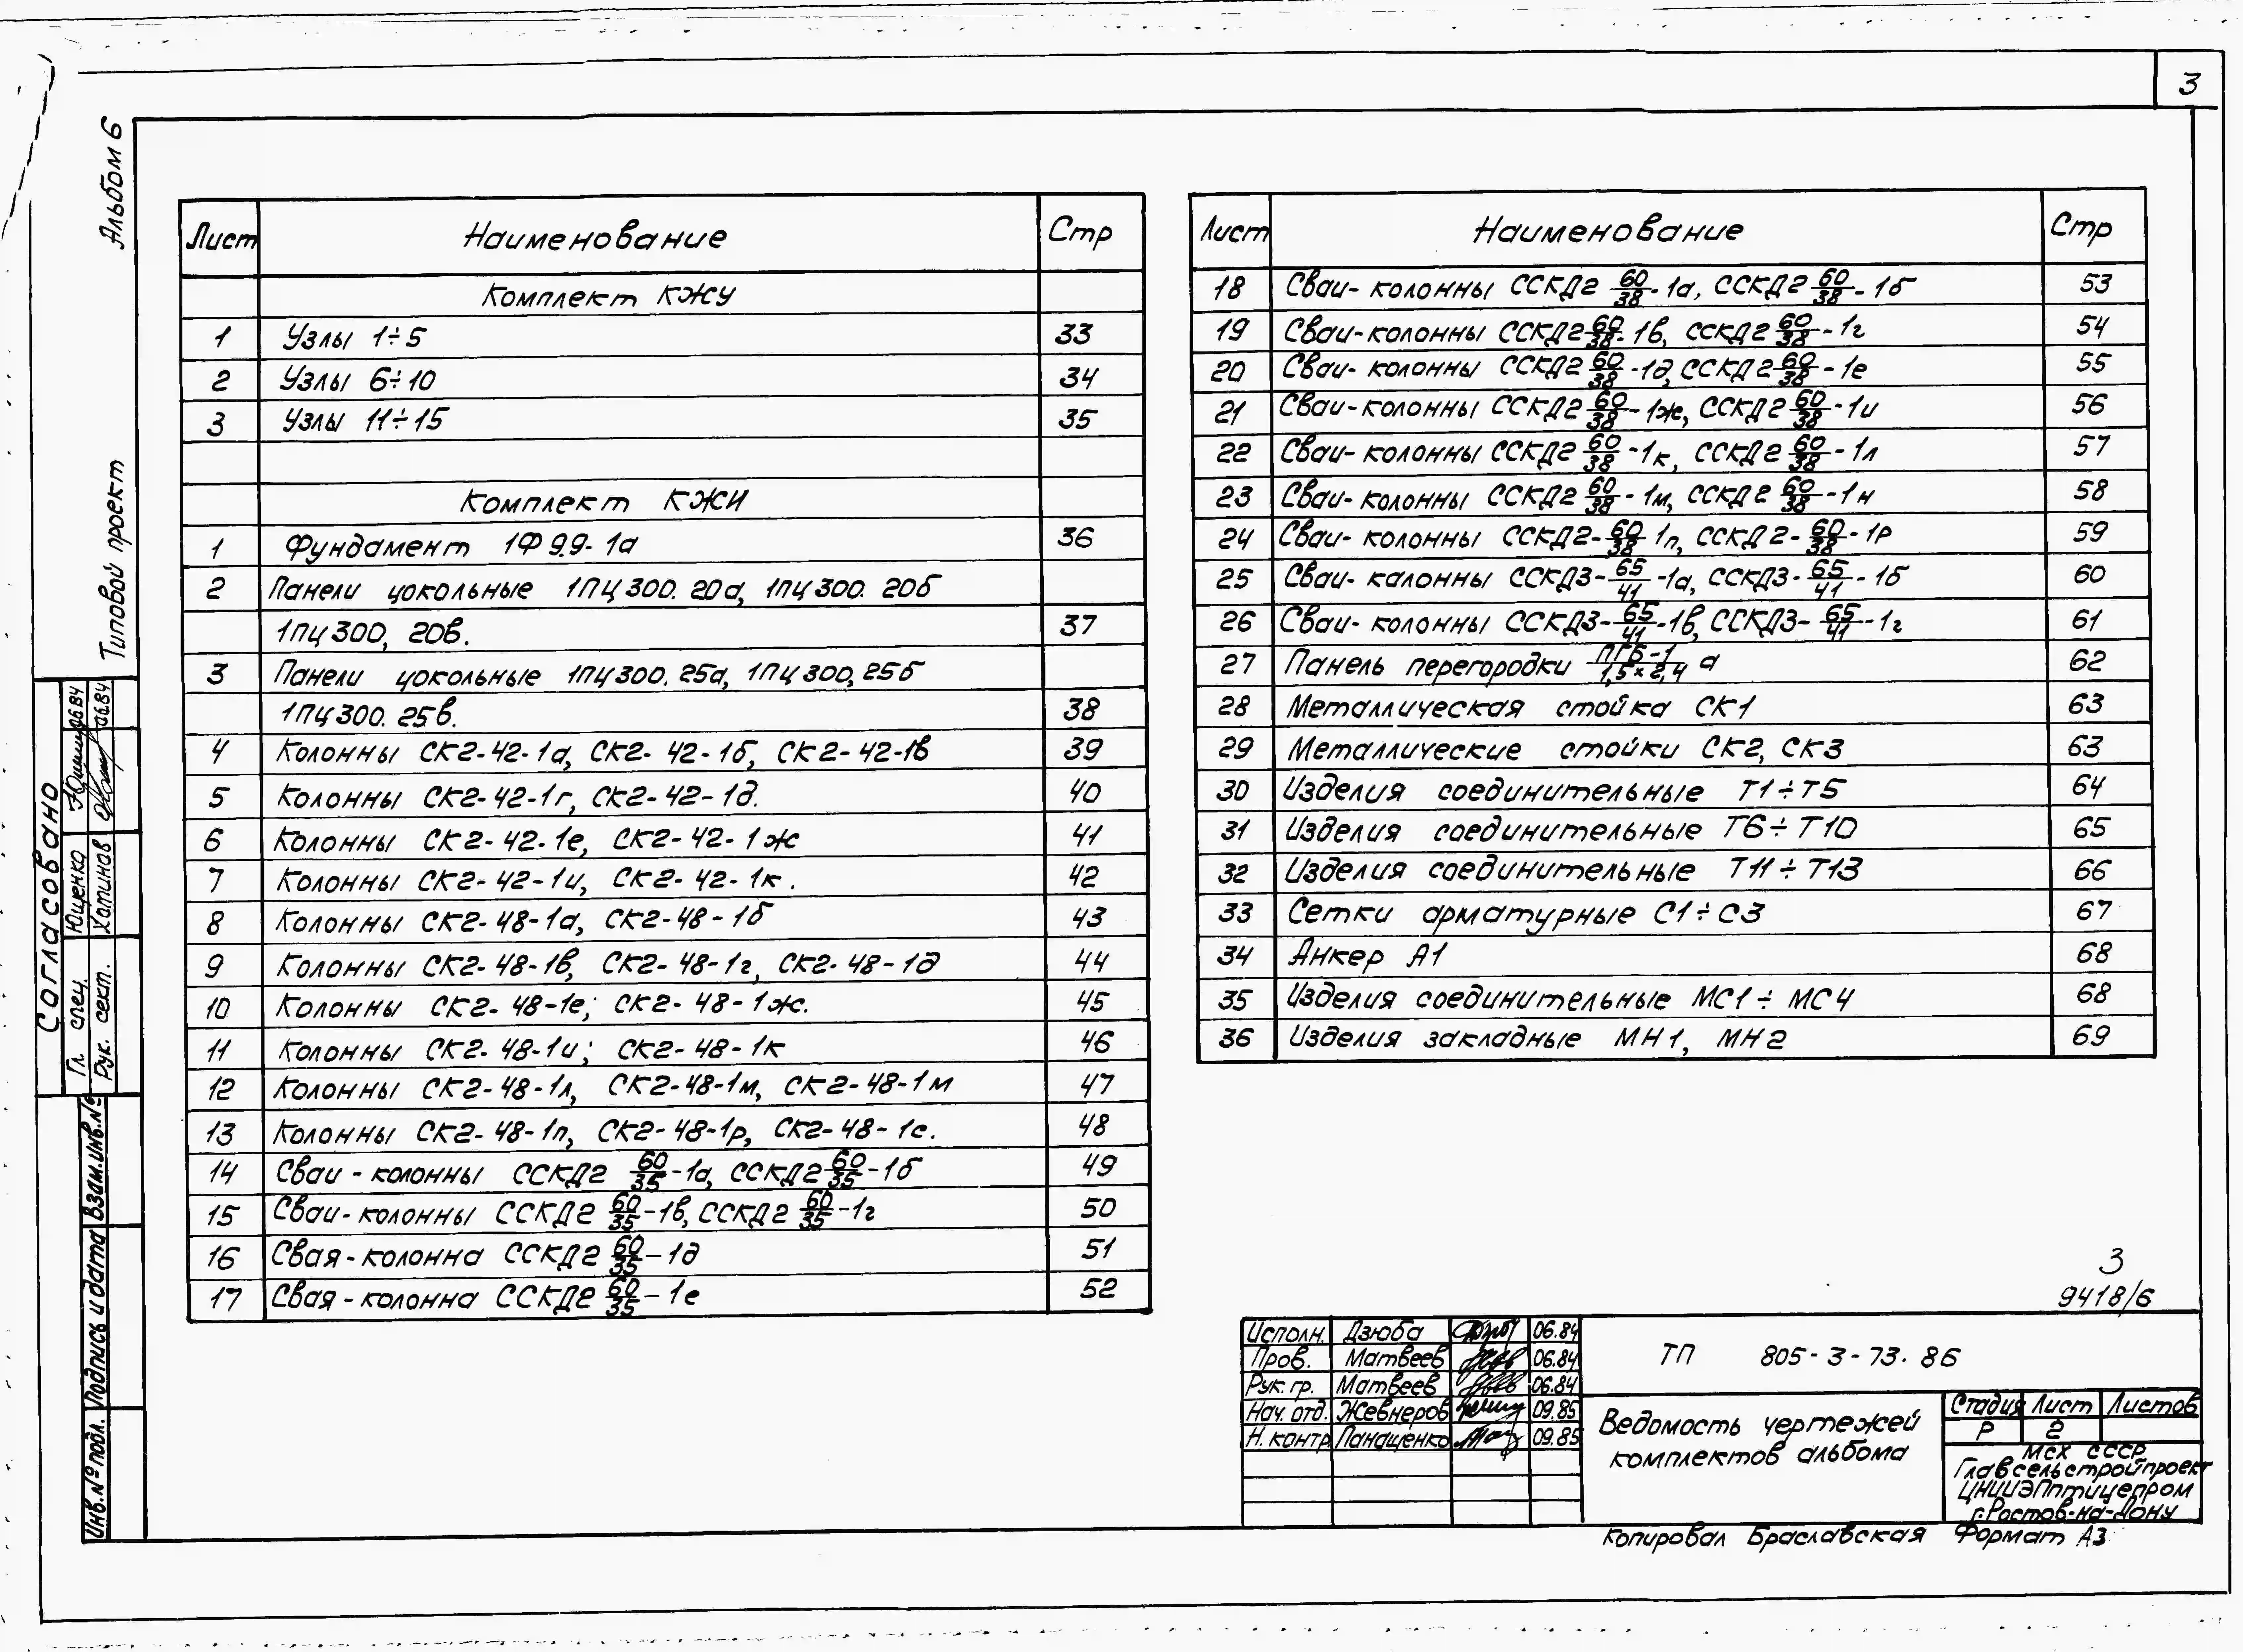 3
Альбом 6
Типовой проект
Лист Наименование Стр
Комплект КЖУ
1 Узлы 1÷5 33
2 Узлы 6÷10 34
3 Узлы 11÷15 35
Комплект КЖИ
1 Фундамент 1Ф 9.9-1а 36
2 Панели цокольные 1ПЦ 300.20а, 1ПЦ 300.20б
1ПЦ 300, 20в. 37
3 Панели цокольные 1ПЦ 300.25а, 1ПЦ 300,25б
1ПЦ 300.25в. 38
4 Колонны СК2-42-1а, СК2-42-1б, СК2-42-1в 39
5 Колонны СК2-42-1г, СК2-42-1д. 40
6 Колонны СК2-42-1е, СК2-42-1ж 41
7 Колонны СК2-42-1и, СК2-42-1к. 42
8 Колонны СК2-48-1а, СК2-48-1б 43
9 Колонны СК2-48-1в, СК2-48-1г, СК2-48-1д 44
10 Колонны СК2-48-1е; СК2-48-1ж. 45
11 Колонны СК2-48-1и; СК2-48-1к 46
12 Колонны СК2-48-1л, СК2-48-1м, СК2-48-1м 47
13 Колонны СК2-48-1п, СК2-48-1р, СК2-48-1с. 48
14 Сваи-колонны ССКД2 60/35-1а, ССКД2 60/35-1б 49
15 Сваи-колонны ССКД2 60/35-1в, ССКД2 60/35-1г 50
16 Свая-колонна ССКД2 60/35-1д 51
17 Свая-колонна ССКД2 60/35-1е 52
Лист Наименование Стр
18 Сваи-колонны ССКД2 60/38-1а, ССКД2 60/38-1б 53
19 Сваи-колонны ССКД2 60/38-1в, ССКД2 60/38-1г 54
20 Сваи-колонны ССКД2 60/38-1д, ССКД2 60/38-1е 55
21 Сваи-колонны ССКД2 60/38-1ж, ССКД2 60/38-1и 56
22 Сваи-колонны ССКД2 60/38-1к, ССКД2 60/38-1л 57
23 Сваи-колонны ССКД2 60/38-1м, ССКД2 60/38-1н 58
24 Сваи-колонны ССКД2-60/38-1п, ССКД2-60/38-1р 59
25 Сваи-калонны ССКД3-65/41-1а, ССКД3-65/41-1б 60
26 Сваи-колонны ССКД3-65/41-1в, ССКД3-65/41-1г 61
27 Панель перегородки ПГБ-1/1,5×2,4 а 62
28 Металлическая стойка СК1 63
29 Металлические стойки СК2, СК3 63
30 Изделия соединительные Т1÷Т5 64
31 Изделия соединительные Т6÷Т10 65
32 Изделия соединительные Т11÷Т13 66
33 Сетки арматурные С1÷С3 67
34 Анкер А1 68
35 Изделия соединительные МС1÷МС4 68
36 Изделия закладные МН1, МН2 69
Согласовано
Гл. спец. Ющенко 0684
Рук. сект. Хатинов 0684
Взам.инв.№
Подпись и дата
Инв.№подл.
3
9418/6
Исполн. Дзюба 06.84
Пров. Матвеев 06.84
Рук.гр. Матвеев 06.84
Нач. отд. Жевнеров 09.85
Н.контр Панащенко 09.85
ТП 805-3-73.86
Ведомость чертежей
комплектов альбома
Стадия Лист Листов
Р 2
МСХ СССР
Главсельстройпроект
ЦНИИЭПптицепром
г.Ростов-на-Дону
Копировал Браславская Формат А3